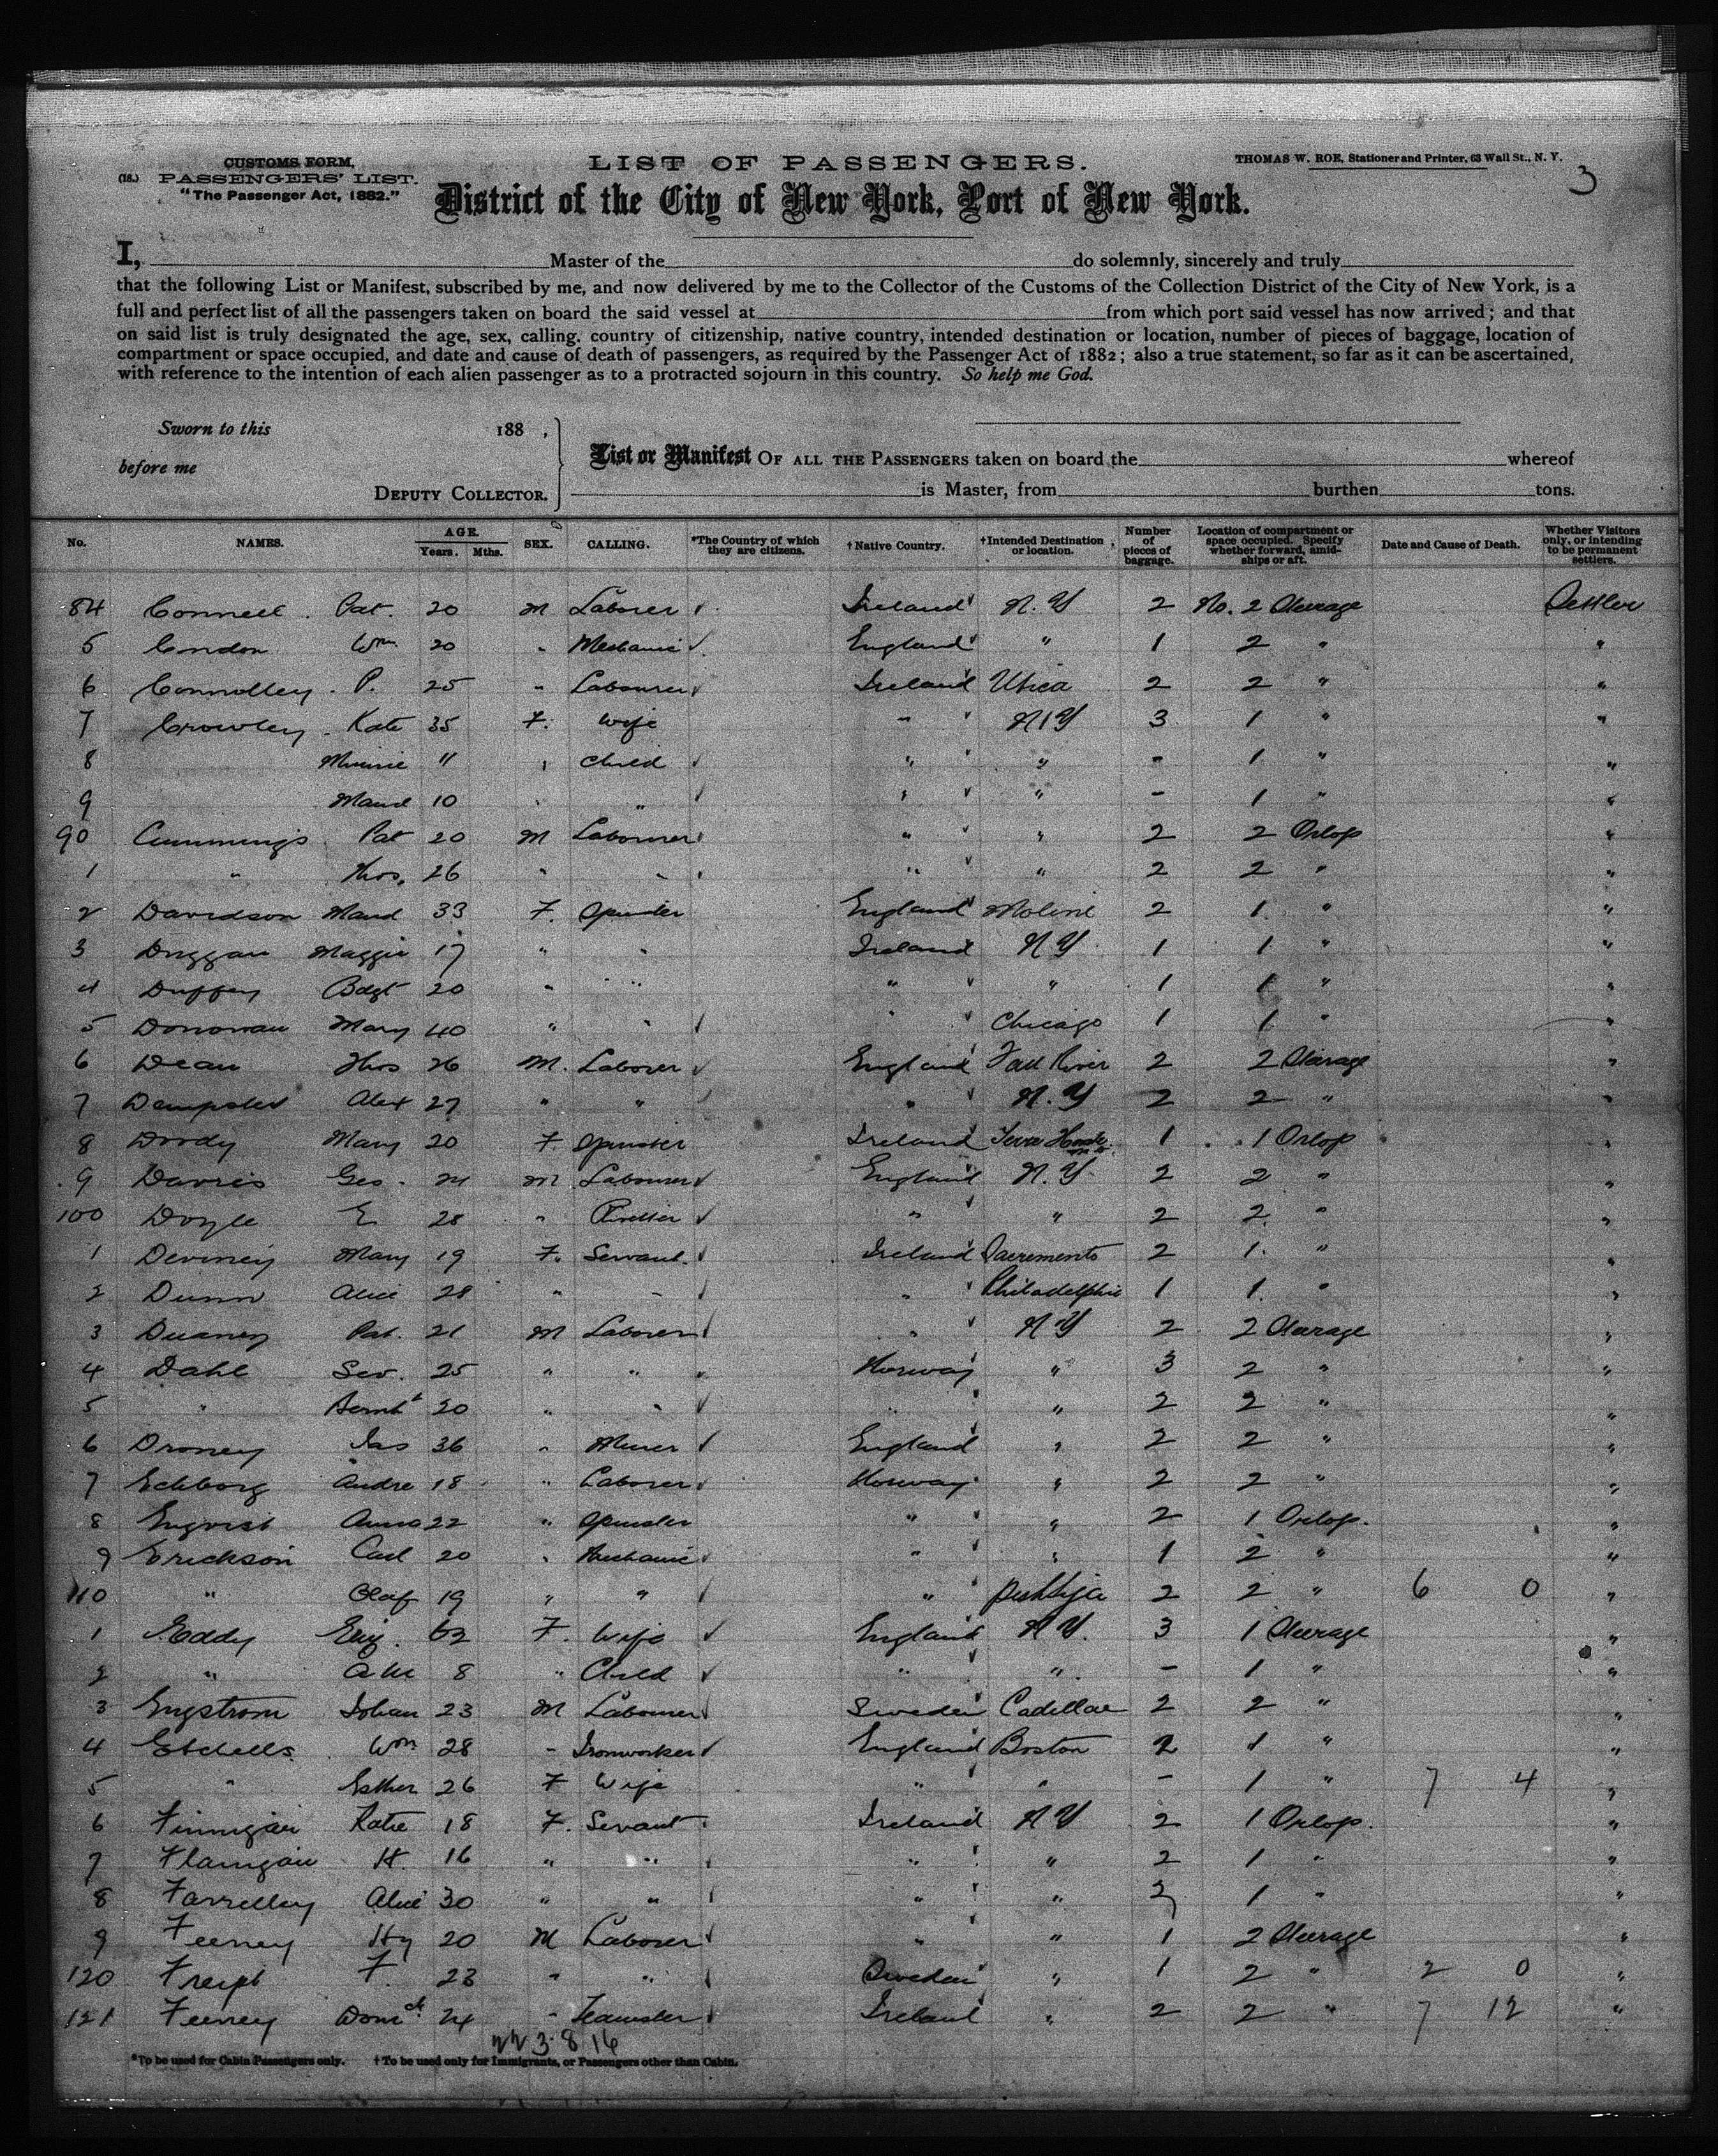 3
CUSTOMS FORM, LIST OF PASSENGERS. THOMAS W. ROE, Stationer and Printer, 63 Wall St., N. Y.
(18.) PASSENGERS' LIST.
"The Passenger Act, 1882." District of the City of New York, Port of New York.
I, Master of the do solemnly, sincerely and truly
that the following List or Manifest, subscribed by me, and now delivered by me to the Collector of the Customs of the Collection District of the City of New York, is a
full and perfect list of all the passengers taken on board the said vessel at from which port said vessel has now arrived; and that
on said list is truly designated the age, sex, calling, country of citizenship, native country, intended destination or location, number of pieces of baggage, location of
compartment or space occupied, and date and cause of death of passengers, as required by the Passenger Act of 1882; also a true statement, so far as it can be ascertained,
with reference to the intention of each alien passenger as to a protracted sojourn in this country. So help me God.
Sworn to this 188 ,
before me
DEPUTY COLLECTOR.
List or Manifest OF ALL THE PASSENGERS taken on board the whereof
is Master, from burthen tons.
No. NAMES. AGE. Years. Mths. SEX. CALLING. *The Country of which they are citizens. †Native Country. †Intended Destination or location. Number of pieces of baggage. Location of compartment or space occupied. Specify whether forward, amidships or aft. Date and Cause of Death. Whether Visitors only, or intending to be permanent settlers.
84 Connell Pat. 20 M Laborer Ireland N.Y 2 No. 2 Steerage Settler
5 Condon Wm 20 " Mechanic England " 1 2 " "
6 Connolley P. 25 " Labourer Ireland Utica 2 2 " "
7 Crowley Kate 35 F. Wife " N Y 3 1 " "
8 Minnie 11 " Child " " - 1 " "
9 Maud 10 " " " " - 1 " "
90 Cummings Pat 20 M Labourer " " 2 2 Orlop "
1 " Thos. 26 " " " " 2 2 " "
2 Davidson Maud 33 F. Spinster England Moline 2 1 " "
3 Duggan Maggie 17 " " Ireland N Y 1 1 " "
4 Duffey Bdgt 20 " " " " 1 1 " "
5 Donovan Mary 40 " " " Chicago 1 1 " "
6 Dean Thos 26 M. Laborer England Fall River 2 2 Steerage "
7 Dempster Alex 27 " " " N.Y 2 2 " "
8 Doody Mary 20 F. Spinster Ireland 1 1 Orlop "
9 Davies Geo. 24 M Labourer England N.Y 2 2 " "
100 Doyle E 28 " " " 2 2 " "
1 Deviney Mary 19 F. Servant Ireland Sacremento 2 1 " "
2 Dunn Alice 28 " " " Philadelphia 1 1 " "
3 Duaney Pat. 21 M Laborer " N Y 2 2 Steerage "
4 Dahl Sev. 25 " " Norway " 3 2 " "
5 " Bernht 20 " " " " 2 2 " "
6 Droney Jas 36 " Miner England " 2 2 " "
7 Echborg Andre 18 " Laborer Norway " 2 2 " "
8 Enqvist Anna 22 " Spinster " " 2 1 Orlop. "
9 Erickson Carl 20 " Mechanic " " 1 2 " "
110 " Olaf 19 " " " 2 2 " 6 0 "
1 Eddy Eliz. 62 F. Wife England N.Y. 3 1 Steerage "
2 " 8 " Child " " - 1 " "
3 Engstrom Johan 23 M Labourer Sweden Cadillac 2 2 " "
4 Etchells Wm 28 " Ironworker England Boston 2 1 " "
5 " Esther 26 F Wife " " - 1 " 7 4 "
6 Finnigan Katie 18 F. Servant Ireland N Y 2 1 Orlop. "
7 Flanigan H. 16 " " " " 2 1 " "
8 Farrelley Alice 30 " " " " 2 1 " "
9 Feeney Hy 20 M Laborer " " 1 2 Steerage "
120 F. 23 " " Sweden " 1 2 " 2 0 "
121 Feeney Domck 24 " Teamster Ireland " 2 2 " 7 12 "
22 3 8 16
*To be used for Cabin Passengers only. †To be used only for Immigrants, or Passengers other than Cabin.